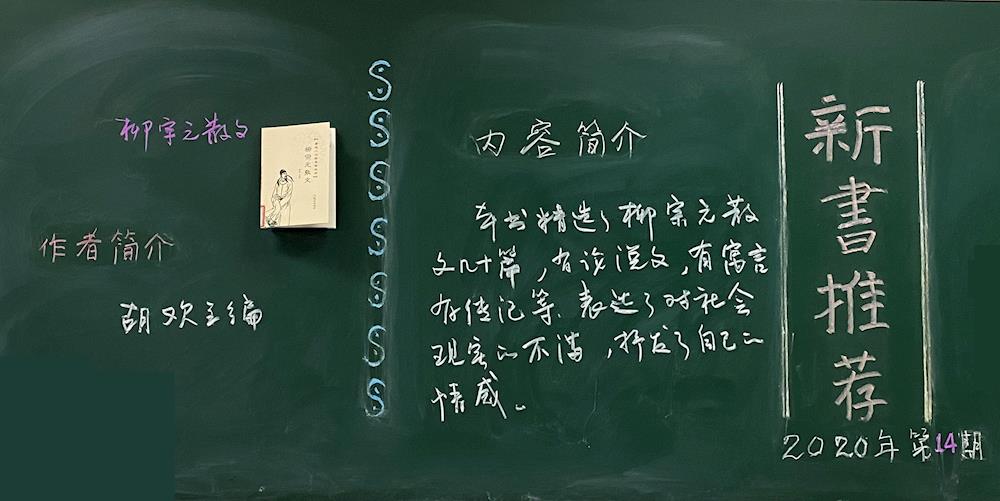 新書推荐
2020年第14期
内容简介
本书精选了柳宗元散
文几十篇，有论说文，有寓言
有传记等、表达了对社会
现实的不满，抒发了自己的
情感。
柳宗元散文
柳宗元散文
作者简介
胡欢主编